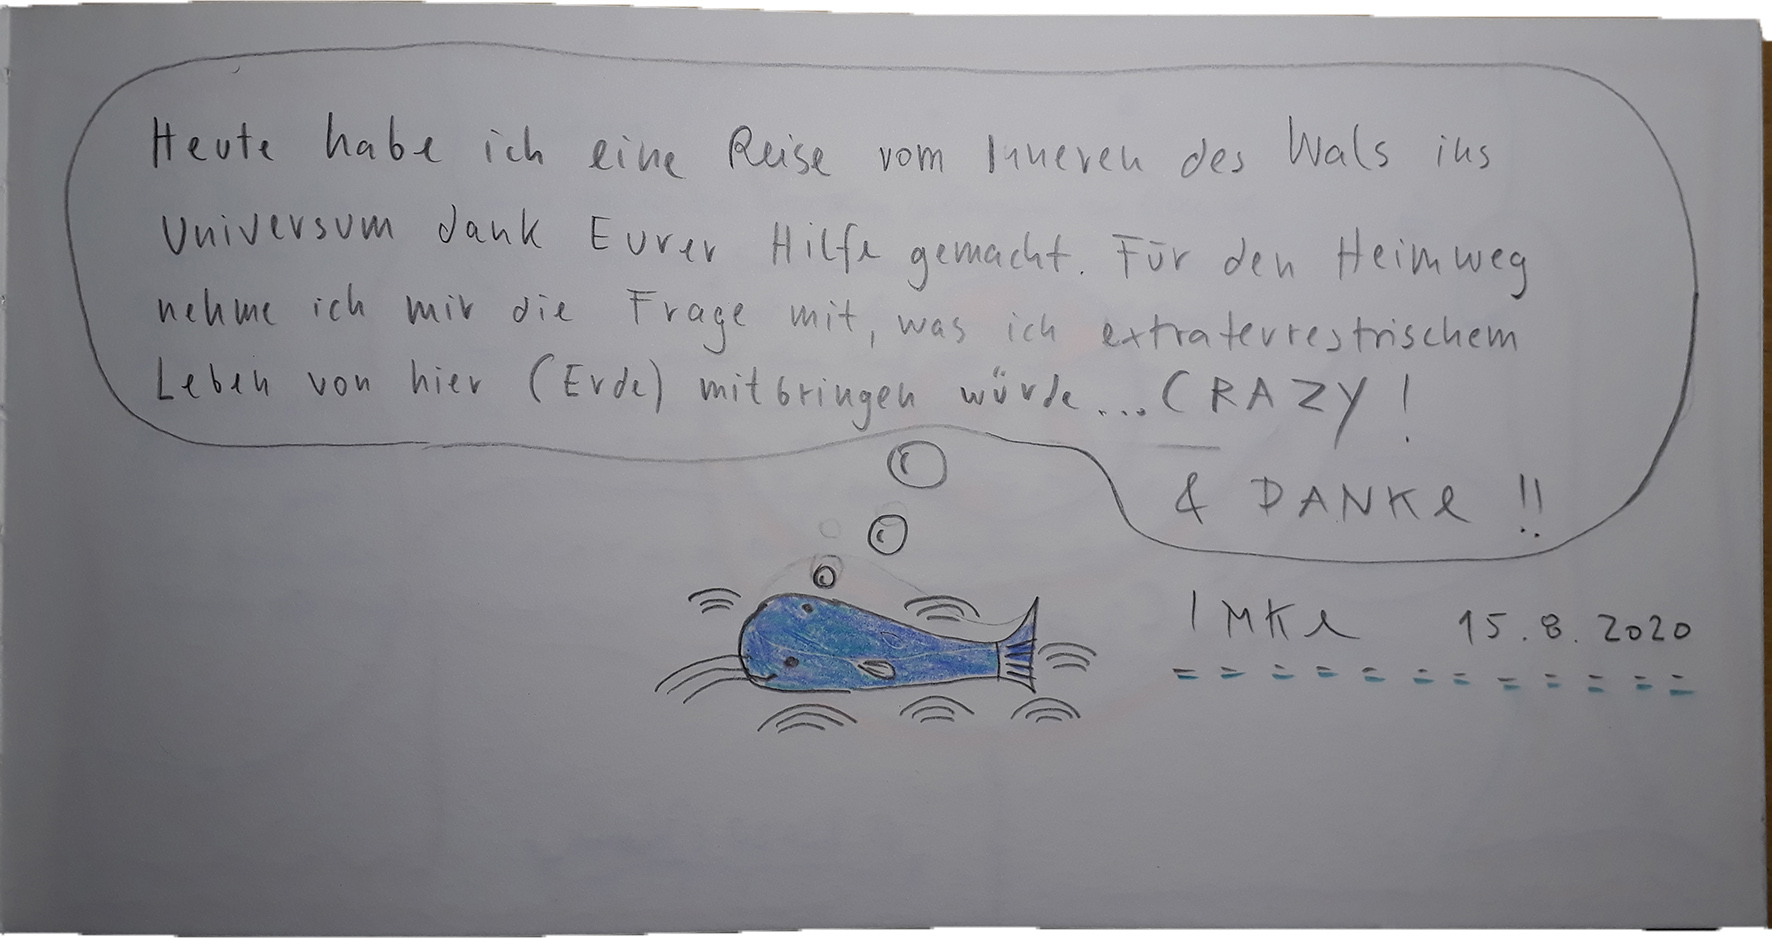 Heute habe ich eine Reise vom Inneren des Wals ins
Universum dank Eurer Hilfe gemacht. Für den Heimweg
nehme ich mir die Frage mit, was ich extraterrestrischem
Leben von hier (Erde) mitbringen würde... CRAZY!
& DANKe!!
IMKe 15.8.2020